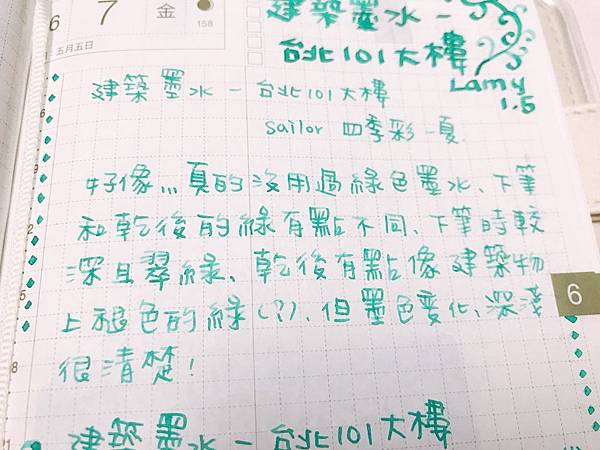 6 7 金
158
五月五日
建築墨水-
台北101大樓
Lamy
1.5
建築墨水-台北101大樓
Sailor 四季彩-夏.
好像...真的沒用過綠色墨水、下筆
和乾後的綠有點不同、下筆時較
深且翠綠、乾後有點像建築物
上褪色的綠(?)、但墨色變化、深淺
很清楚!
6
建築墨水-台北101大樓